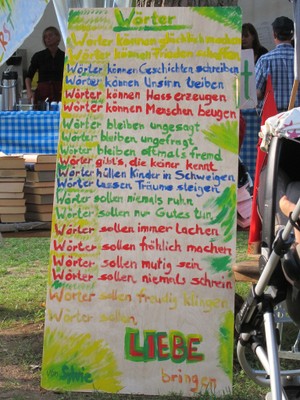 Wörter
Wörter können glücklich machen
Wörter können Frieden schaffen
Wörter können Geschichten schreiben
Wörter können Unsinn treiben
Wörter können Hass erzeugen
Wörter können Menschen beugen
Wörter bleiben ungesagt
Wörter bleiben ungefragt
Wörter bleiben oftmals fremd
Wörter gibt's, die keiner kennt
Wörter hüllen Kinder in Schweigen
Wörter lassen Träume steigen
Wörter sollen niemals ruhn
Wörter sollen nur Gutes tun
Wörter sollen immer Lachen
Wörter sollen fröhlich machen
Wörter sollen mutig sein
Wörter sollen niemals schrein
Wörter sollen traurig klingen
Wörter sollen
LIEBE
bringen
von Sylvie